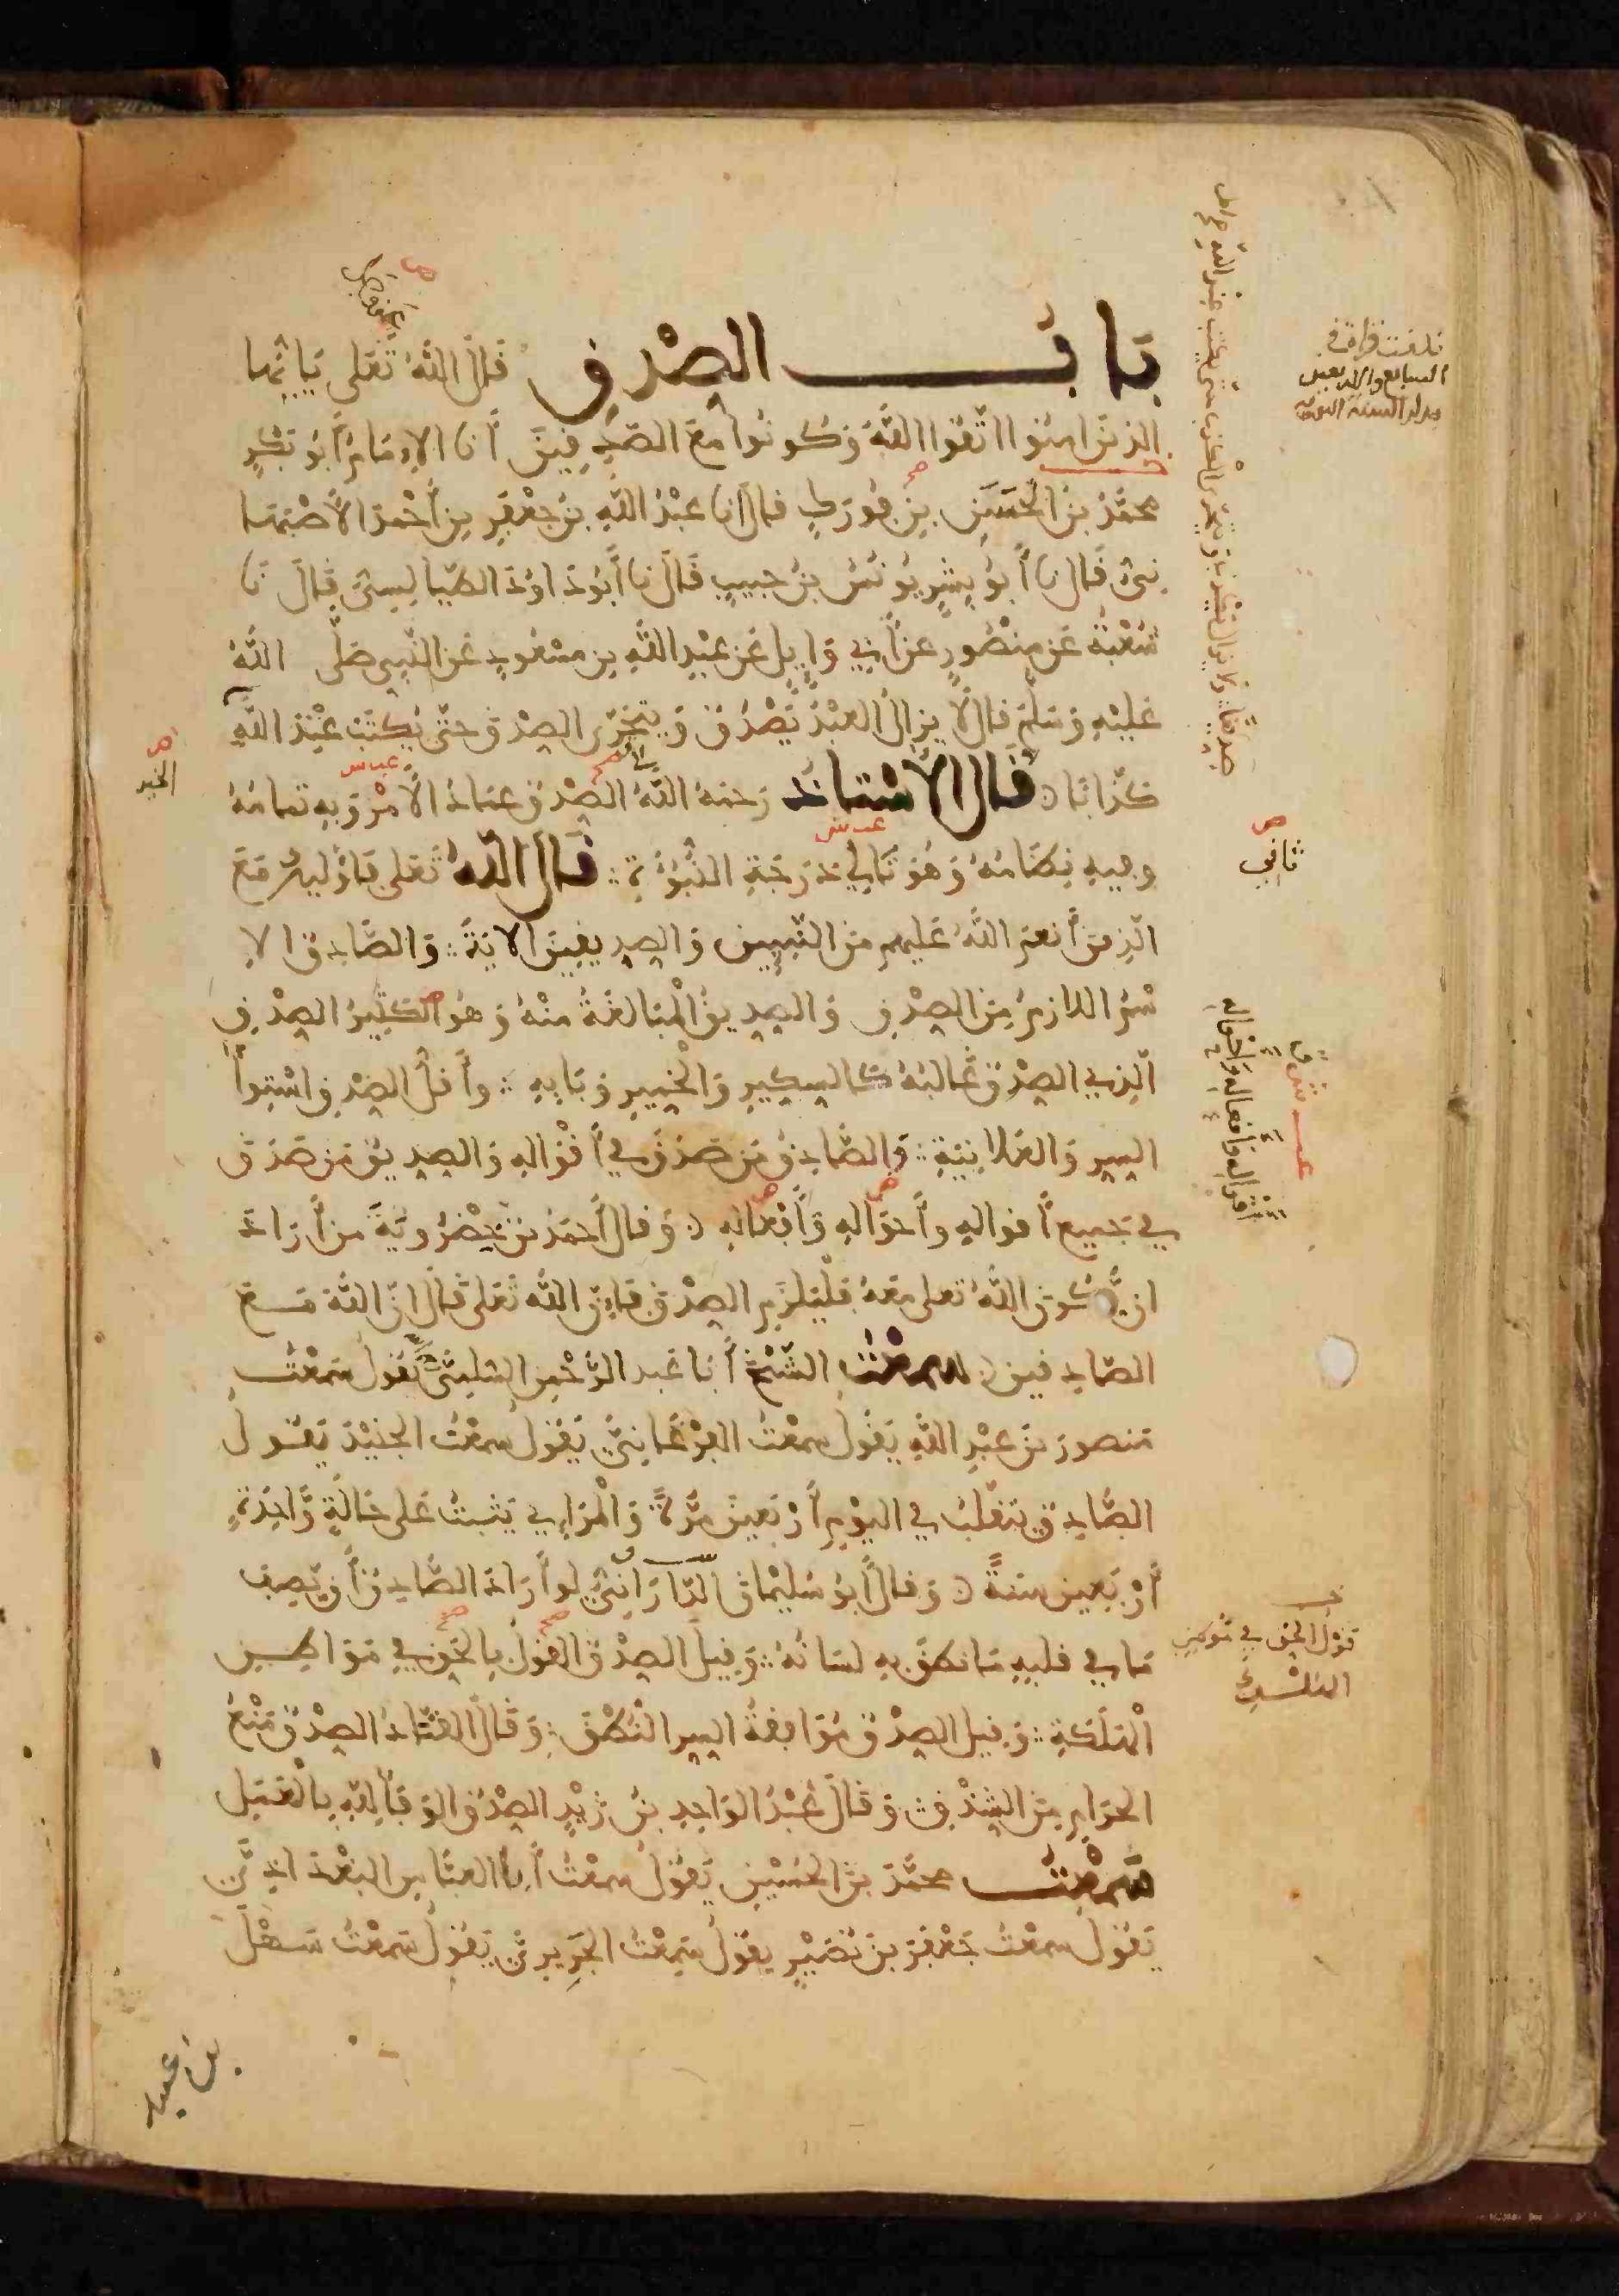 بَابُ الصِّدْقِ قَالَ اللَّهُ تَعَلى يَا يُّهَا
الذِينَ امَنُوا اتَّقُوا اللَّهَ وَكُونُوا مَعَ الصَّدِقِينَ أَنَا الإِمَامُ أَبُو بَكْرٍ
مُحَمَّدُ بْنُ الْحَسَنِ بْنِ فُورَكٍ قَالَ أنا عَبْدُ اللَّهِ بْنُ جَعْفَرِ بْنِ أَحْمَدَ الأَصْبَهَا
نِيُّ قَالَ نا أَبُو بِشْرٍ يُونُسُ بْنُ حَبِيبٍ قَالَ نا أَبُو دَاوُدَ الطَّيَالِسِيُّ قَالَ نَا
شُعْبَةُ عَنْ مَنْصُورٍ عَنْ أَبِي وَايِلٍ عَنْ عَبْدِ اللَّهِ بْنِ مَسْعُودٍ عَنِ النَّبِيِّ صَلَّى اللَّهُ
عَلَيْهِ وَسَلَّمَ قَالَ لاَ يَزَالُ الْعَبْدُ يَصْدُقُ وَيَتَحَرَّى الصِّدْقَ حَتَّى يُكْتَبَ عِنْدَ اللَّهِ
صِدِّيقًا وَلاَ يَزَالُ يَكْذِبُ وَيَتَحَرَّى الْكَذِبَ حَتَّى يُكْتَبَ عِنْدَ اللَّهِ
كَذَّابًا قَالَ الأُسْتَاذُ رَحِمَهُ اللَّهُ الصِّدْقُ عِمَادُ الأَمْرِ وَبِهِ تَمَامُهُ
وَفِيهِ نِظَامُهُ وَهُوَ تَالِي دَرَجَةِ النُّبُوَّةِ قَالَ اللَّهُ تَعَلى فَأُوْلَيِكَ مَعَ
الَّذِينَ أَنْعَمَ اللَّهُ عَلَيْهِم مِنَ النَّبِيِّينَ وَالصِّدِيقِينَ الايَةَ وَالصَّادِقُ الا
سْمُ اللازِمُ مِنَ الصِّدْقِ وَالصِّدِيقُ الْمُبَالَغَةُ مِنْهُ وَهُوَ الْكَثِيرُ الصِّدْقِ
الَّذِي الصِّدْقُ غَالِبُهُ كَالسِّكِّيرِ وَالْخِمِّيرِ وَبَابِهِ وَأَقَلُّ الصِّدْقِ اسْتِوَاءُ
السِّرِّ وَالْعَلاَنِيَةِ وَالصَّادِقُ مَنْ صَدَقَ فِي أَقْوَالِهِ وَالصِّدِيقُ مَنْ صَدَقَ
فِي جَمِيعِ أَقْوَالِهِ وَأَحْوَالِهِ وَأَفْعَالِهِ وَقَالَ أَحْمَدُ بْنُ خِضْرُوَيَةَ مَنْ أَرَادَ
ان يَّكُونَ اللَّهُ تَعَلى مَعَهُ فَلْيَلْزَمِ الصِّدْقَ فَإِنَّ اللَّهَ تَعَلى قَالَ انَّ اللَّهَ مَعَ
الصَّادِقِينَ سَمِعْتُ الشَّيْخَ أَبَا عَبْدِ الرَّحْمَنِ السُّلَمِيَّ يَقُولُ سَمِعْتُ
مَنْصُورَ بْنَ عَبْدِ اللَّهِ يَقُولُ سَمِعْتُ الْفَرْغَانِيَّ يَقُولُ سَمِعْتُ الْجُنَيْدَ يَقُولُ
الصَّادِقُ يَتَقَلَّبُ فِي الْيَوْمِ أَرْبَعِينَ مَرَّةً وَالْمُرَاءِي يَثْبُتُ عَلَى حَالَةٍ وَّاحِدَةٍ
أَرْبَعِينَ سَنَةً وَقَالَ أَبُو سُلَيْمَانَ الدَّارَانِيُّ لَوْ أَرَادَ الصَّادِقُ أَنْ يَّصِفَ
مَا فِي قَلْبِهِ مَا نَطَقَ بِهِ لِسَانُهُ وَقِيلَ الصِّدْقُ الْقَوْلُ بِالْحَقِّ فِي مَوَاطِنِ
الْهَلَكَةِ وَقِيلَ الصِّدْقُ مُوَافَقَةُ السِّرِّ النُّطْقَ وَقَالَ الْقَنَّادُ الصِّدْقُ مَنْعُ
الْحَرَامِ مِنَ الشِّدْقِ وَقَالَ عَبْدُ الْوَاحِدِ بْنُ زَيْدٍ الصِّدْقُ الْوَفَاءُ لِلَّهِ بِالْعَمَلِ
سَمِعْتُ مُحَمَّدَ بْنَ الْحُسَيْنِ يَقُولُ سَمِعْتُ أَبَا الْعَبَّاسِ الْبَغْدَادِيَّ
يَقُولُ سَمِعْتُ جَعْفَرَ بْنَ نُصَيْرٍ يَقُولُ سَمِعْتُ الْجَرِيرِيَّ يَقُولُ سَمِعْتُ سَهْلَ
ثَانِي
أَقْوَالِهِ وَأَفْعَالِهِ وَأَحْوَالِهِ
قَوْلُ الْحَقِّ فِي مَوْطِنِ
بن عبد